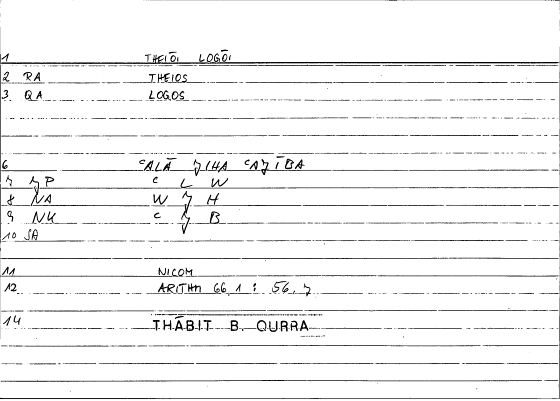 1 THEIŌI LOGŌI
2 RA THEIOS
3 QA LOGOS
6 ʿALĀ ʒIHA ʿAʒĪBA
7 ʒP ʿ L W
8 NA W ʒ H
9 NK ʿ ʒ B
10 SA
11 NICOM
12 ARITHM 66, 1 : 56, 7
14 THĀBIT B. QURRA